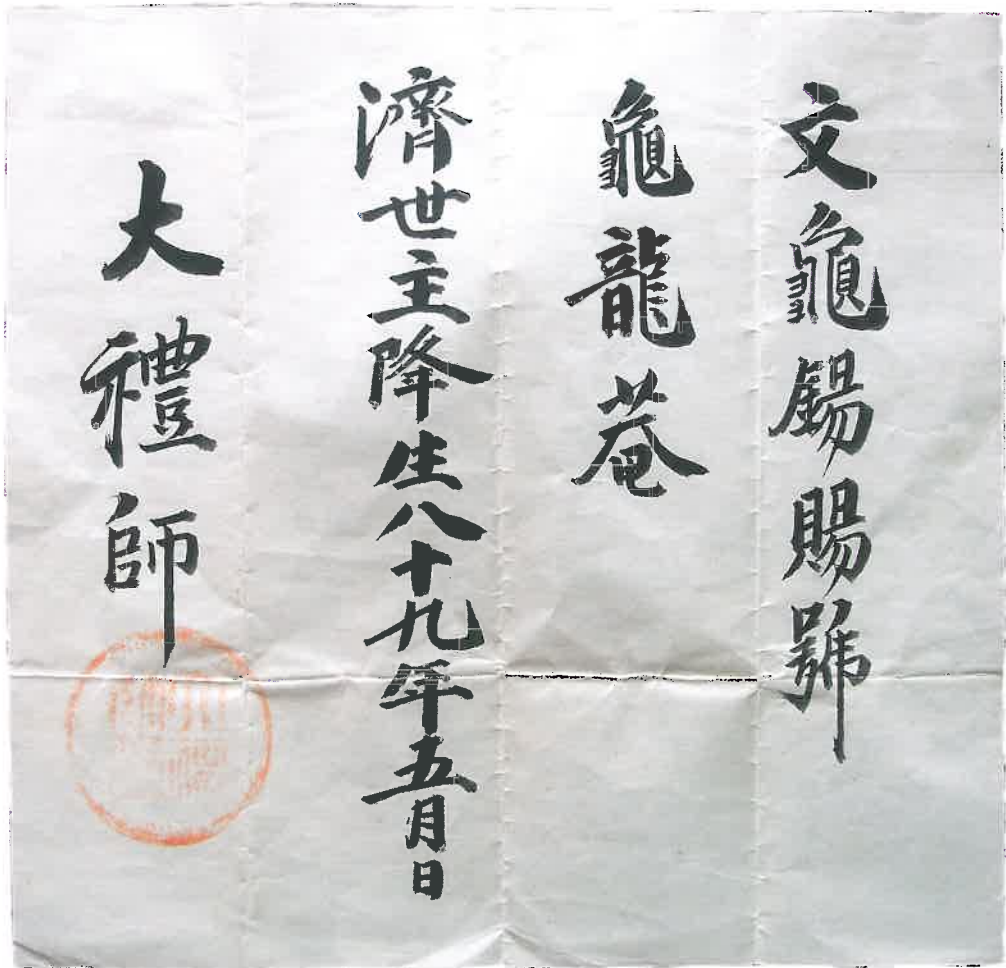 文龜錫賜號
龜龍菴
濟世主降生八十九年五月日
大禮師